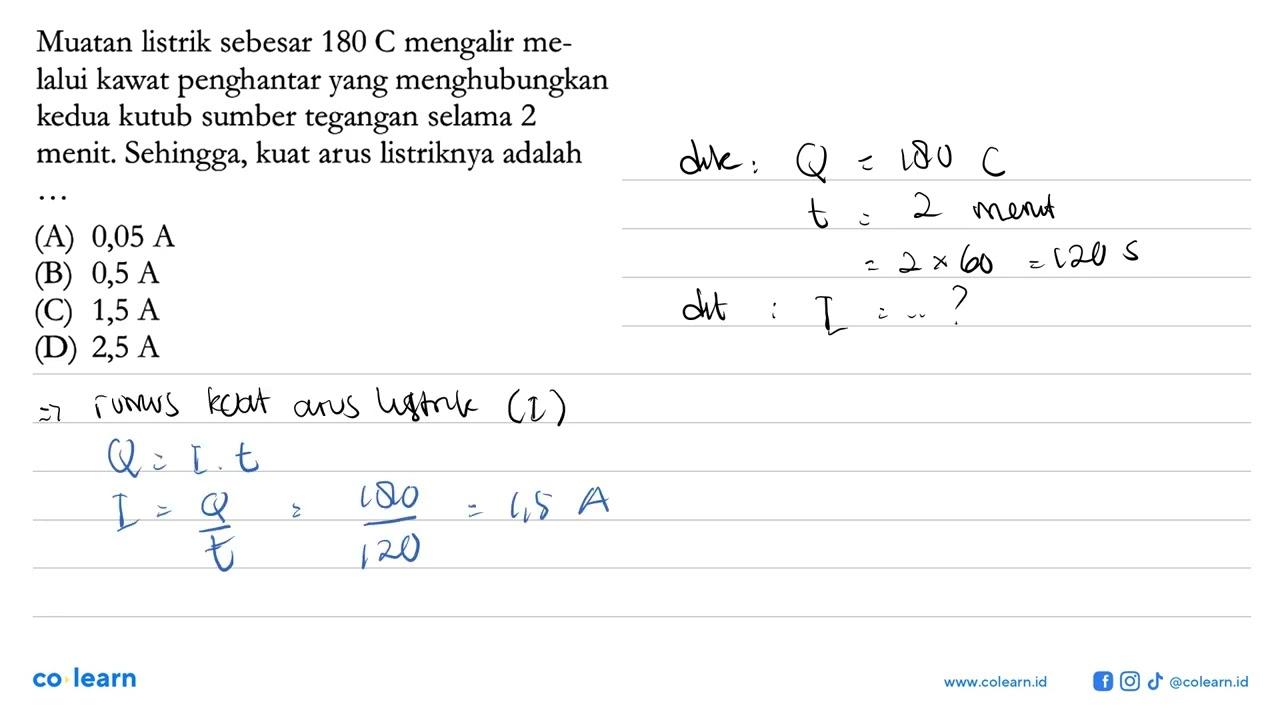 Muatan listrik sebesar 180 C mengalir me-
lalui kawat penghantar yang menghubungkan
kedua kutub sumber tegangan selama 2
menit. Sehingga, kuat arus listriknya adalah
...
(A) 0,05 A
(B) 0,5 A
(C) 1,5 A
(D) 2,5 A
dik : Q = 180 C
t = 2 menit
= 2 × 60 = 120 s
dit : I = ... ?
=> rumus kuat arus listrik (I)
Q = I . t
I = Q/t = 180/120 = 1,5 A
co learn
www.colearn.id
@colearn.id